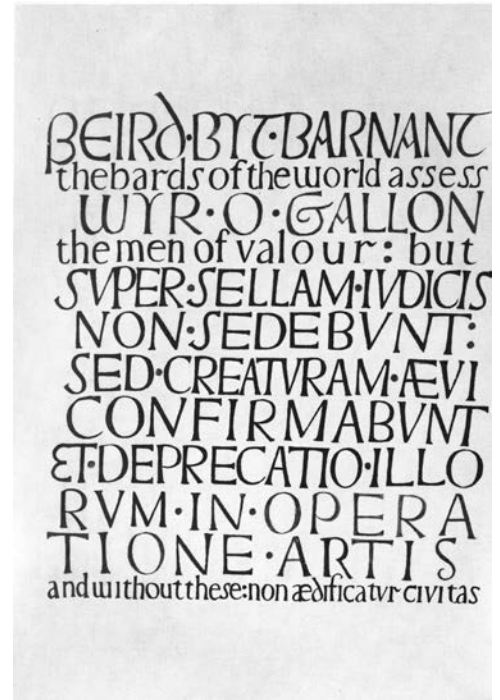 BEIRD·BYT·BARNANT
the bards of the world assess
WYR·O·GALLON
the men of valour: but
SVPER·SELLAM·IVDICIS
NON·SEDEBVNT:
SED·CREATVRAM·ÆVI
CONFIRMABVNT
ET·DEPRECATIO·ILLO
RVM·IN·OPERA
TIONE·ARTIS
and without these: non ædificatvr civitas